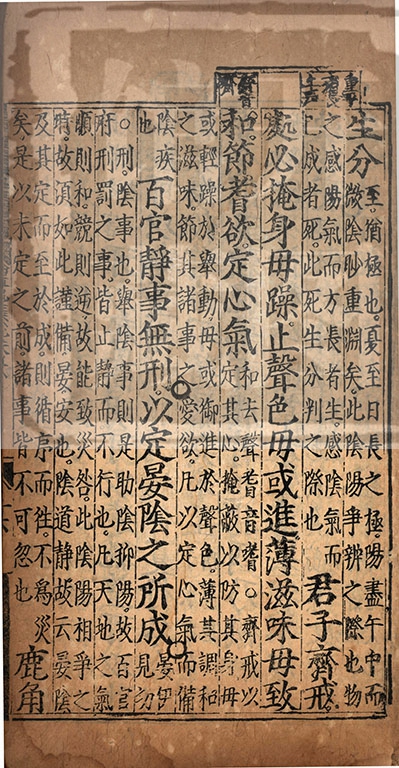 生分至猶極也。夏至日長之極。陽盡午中而
微陰眇重淵矣。此陰陽爭辨之際也。物
之感陽氣而方長者生。感陰氣而
已成者死。此死生分判之際也 君子齊戒。
處必掩身毋躁。止聲色毋或進。薄滋味毋致
和。節耆欲。定心氣和去聲耆音嗜○齊戒以
定其心。掩蔽以防其身。毋
或輕躁於舉動。毋或御進於聲色。薄其調和
之滋味。節其諸事之愛欲。凡以定心氣而備
陰疾
也 百官靜事無刑。以定晏陰之所成晏伊
見切
○刑陰事也。舉陰事則是助陰抑陽。故百官
府刑罰之事皆止靜而不行也。凡天地之氣
順則和。競則逆。故能致災咎。此陰陽相爭之
時。故須如此謹備。晏安也。陰道靜故云晏陰
及其定而至於成。則循序而往。不為災
矣。是以未定之前。諸事皆不可忽也 鹿角